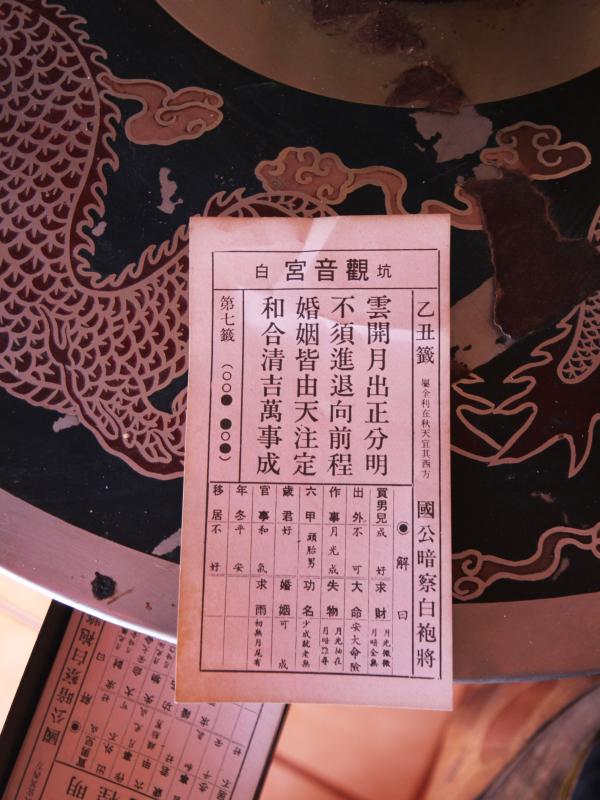 坑 觀音宮 白
乙丑籤 屬金利在秋天宜其西方 國公暗察白袍將
雲開月出正分明
不須進退向前程
婚姻皆由天注定
和合清吉萬事成
第七籤 (○○● ●○●)
◉ 解曰
買男兒 成好 求財 月光微微 月暗全無
出外 不可 大命 安大命險
作事 月光成 失物 月光抽在 月暗難尋
六甲 頭胎男 功名 少成就老無
歲君 好 婚姻 可成
官事 和氣 求雨 初無月尾有
年冬 平安
移居 不好
國公暗察白袍將